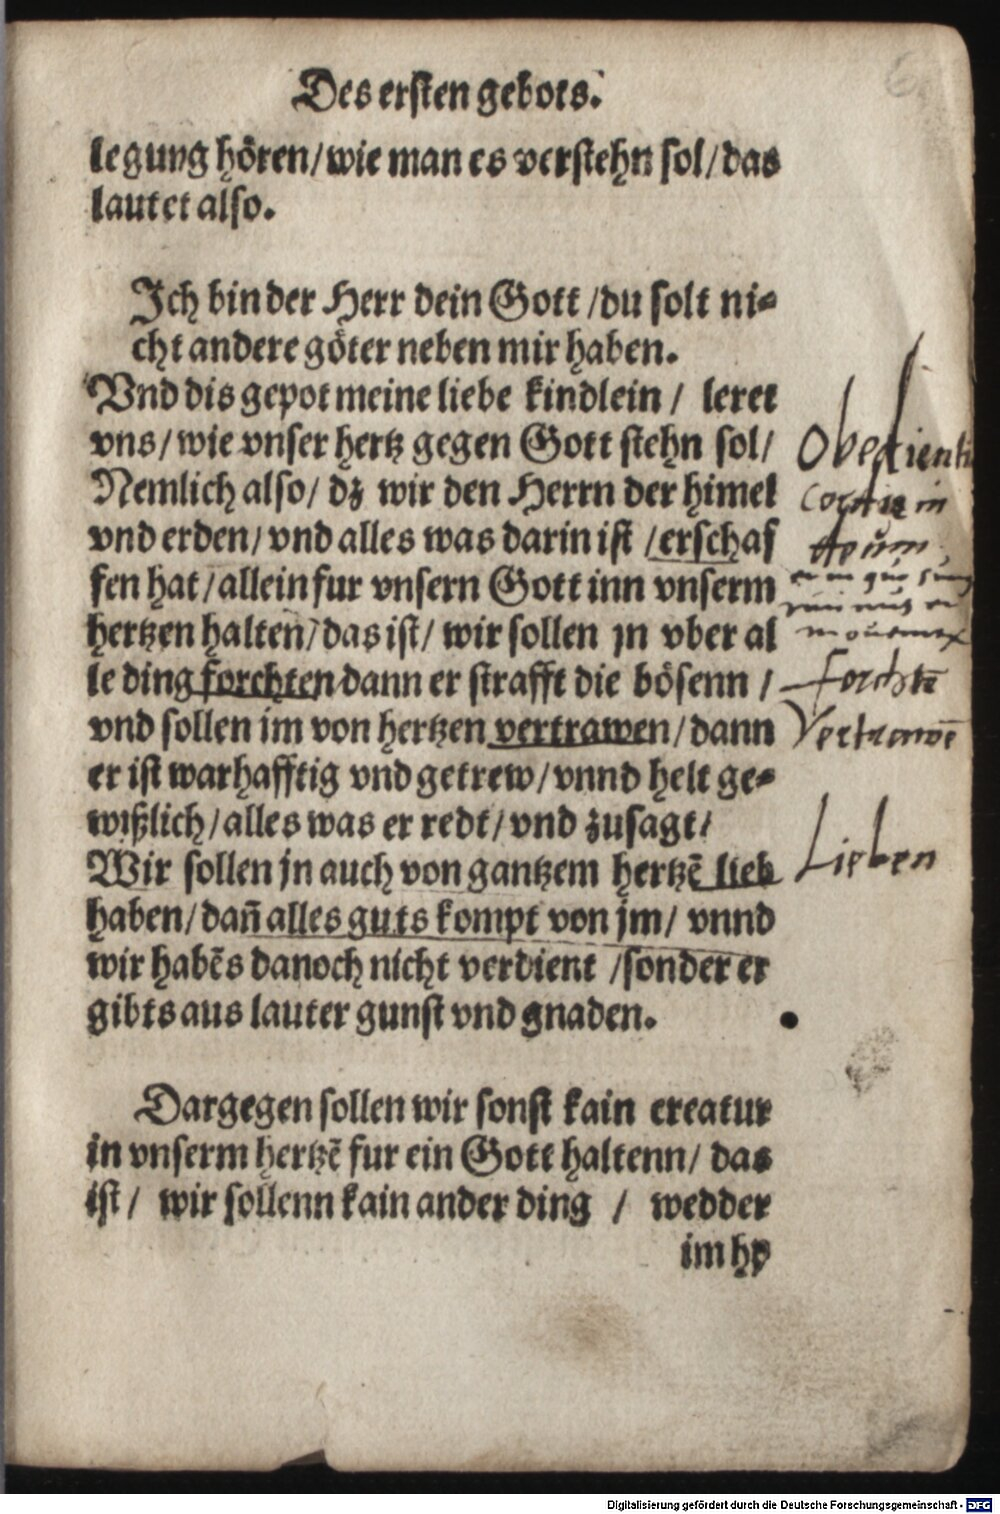 Des ersten gebots.
legung hören/wie man es verstehn sol/das
lautet also.
Ich bin der Herr dein Gott/du solt ni-
cht andere göter neben mir haben.
Vnd dis gepot meine liebe kindlein/ leret
vns/wie vnser hertz gegen Gott stehn sol/
Nemlich also/ dz wir den Herrn der himel
vnd erden/vnd alles was darin ist/erschaf
fen hat/allein fur vnsern Gott inn vnserm
hertzen halten/das ist/ wir sollen jn vber al
le ding forchten dann er strafft die bösenn/
vnd sollen im von hertzen vertrawen/dann
er ist warhafftig vnd getrew/vnnd helt ge-
wißlich/alles was er redt/vnd zusagt/
Wir sollen jn auch von gantzem hertzē lieb
haben/dañ alles guts kompt von jm/ vnnd
wir habēs danoch nicht verdient/sonder er
gibts aus lauter gunst vnd gnaden.
Dargegen sollen wir sonst kain creatur
in vnserm hertzē fur ein Gott haltenn/ das
ist/ wir sollenn kain ander ding/ wedder
im hy
Obedienti
Cordis in
deum
forchtē
Vertrawē
Lieben
Digitalisierung gefördert durch die Deutsche Forschungsgemeinschaft - DFG